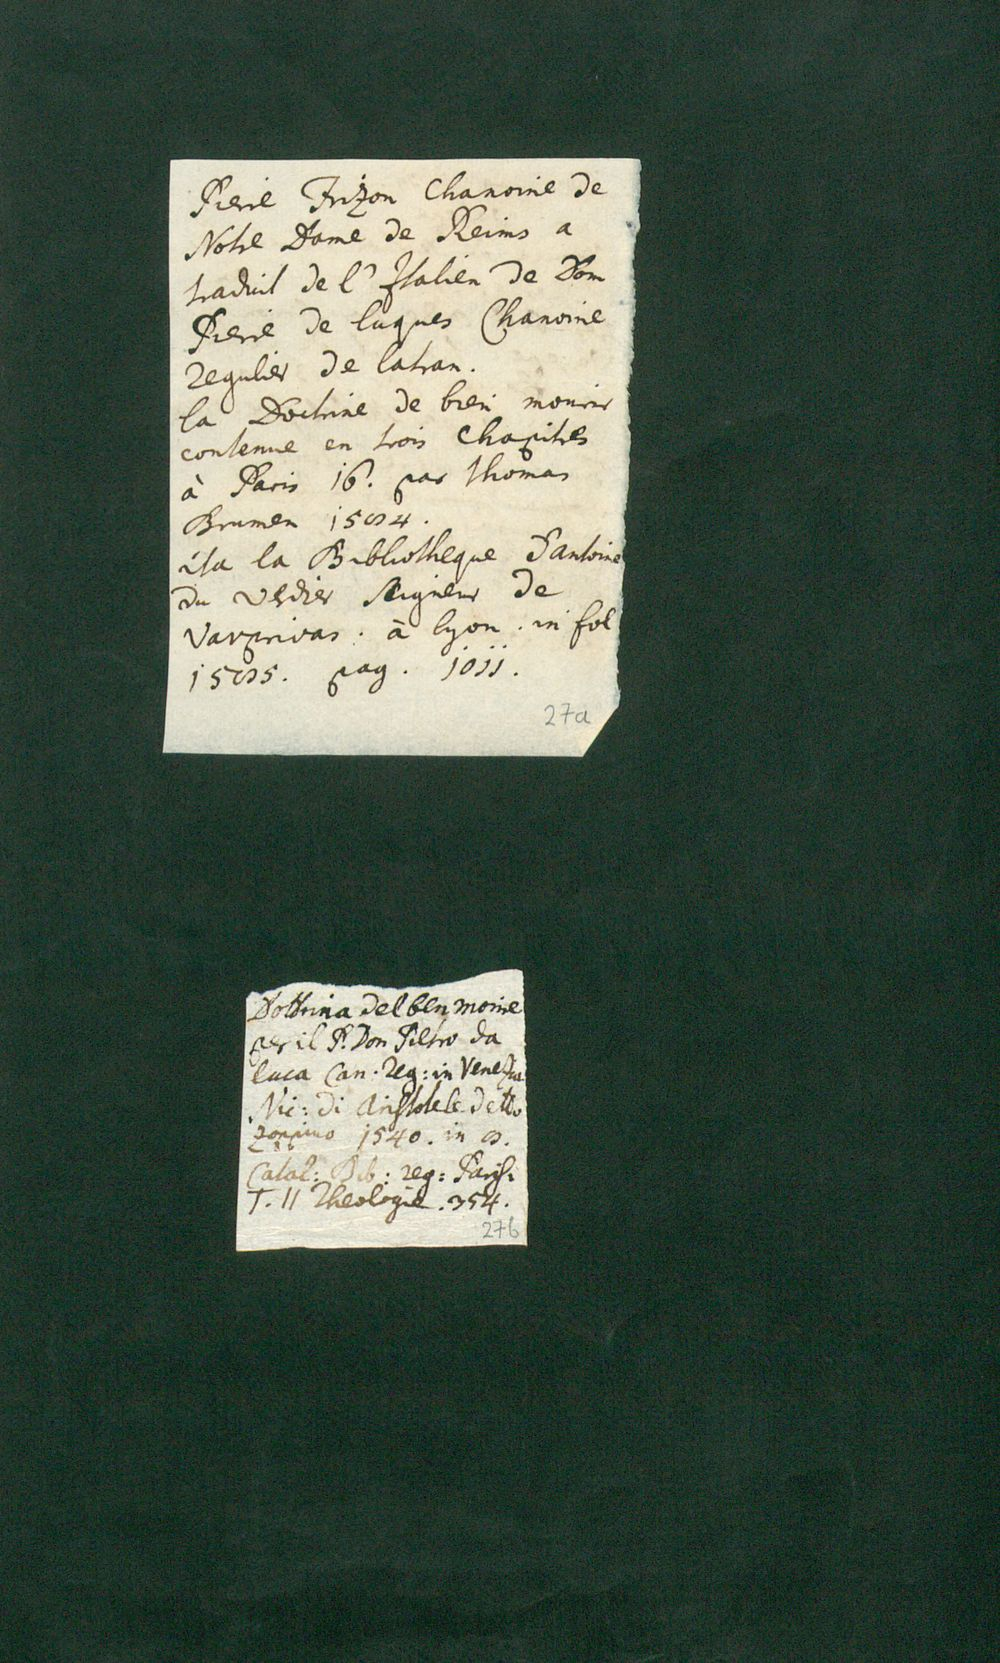 Pierre Frizon Chanoine de
Notre Dame de Reims a
traduit de l'Italien de Dom
Pierre de luques Chanoine
regulier de latran.
la Doctrine de bien mourir
contenue en trois Chapitres
à Paris 16. par thomas
Brumen 1584.
ita la Bibliotheque d'antoine
du verdier seigneur de
Vauprivas. à lyon. in fol
1585. pag. 1011.
27a
Dottrina del ben morire
per il P. Don Pietro da
luca Can. Reg: in Venezia
Nic: di Aristotele detto
zoppino 1540. in 8.
Catal: Bib: reg: Paris:
T. II Theologie. 354.
27b